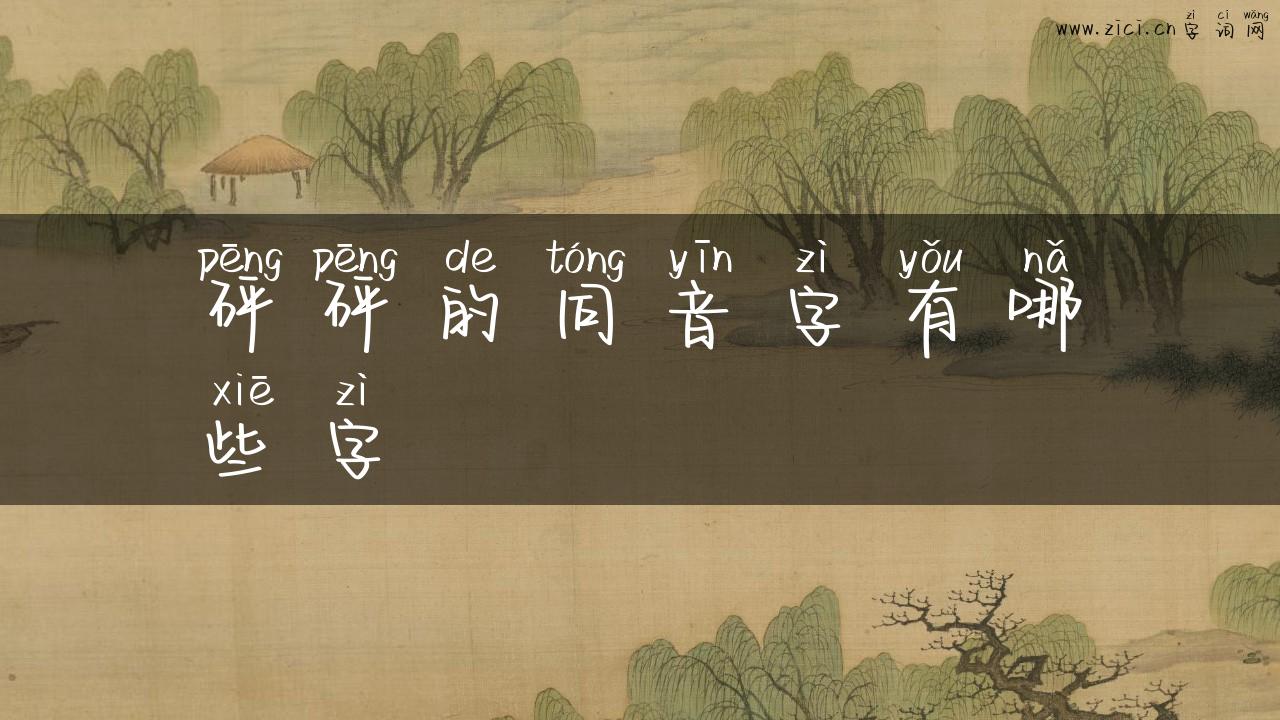 zì cí wǎng
www.zici.cn 字 词 网
pēng pēng de tóng yīn zì yǒu nǎ
砰 砰 的 同 音 字 有 哪
xiē zì
些 字